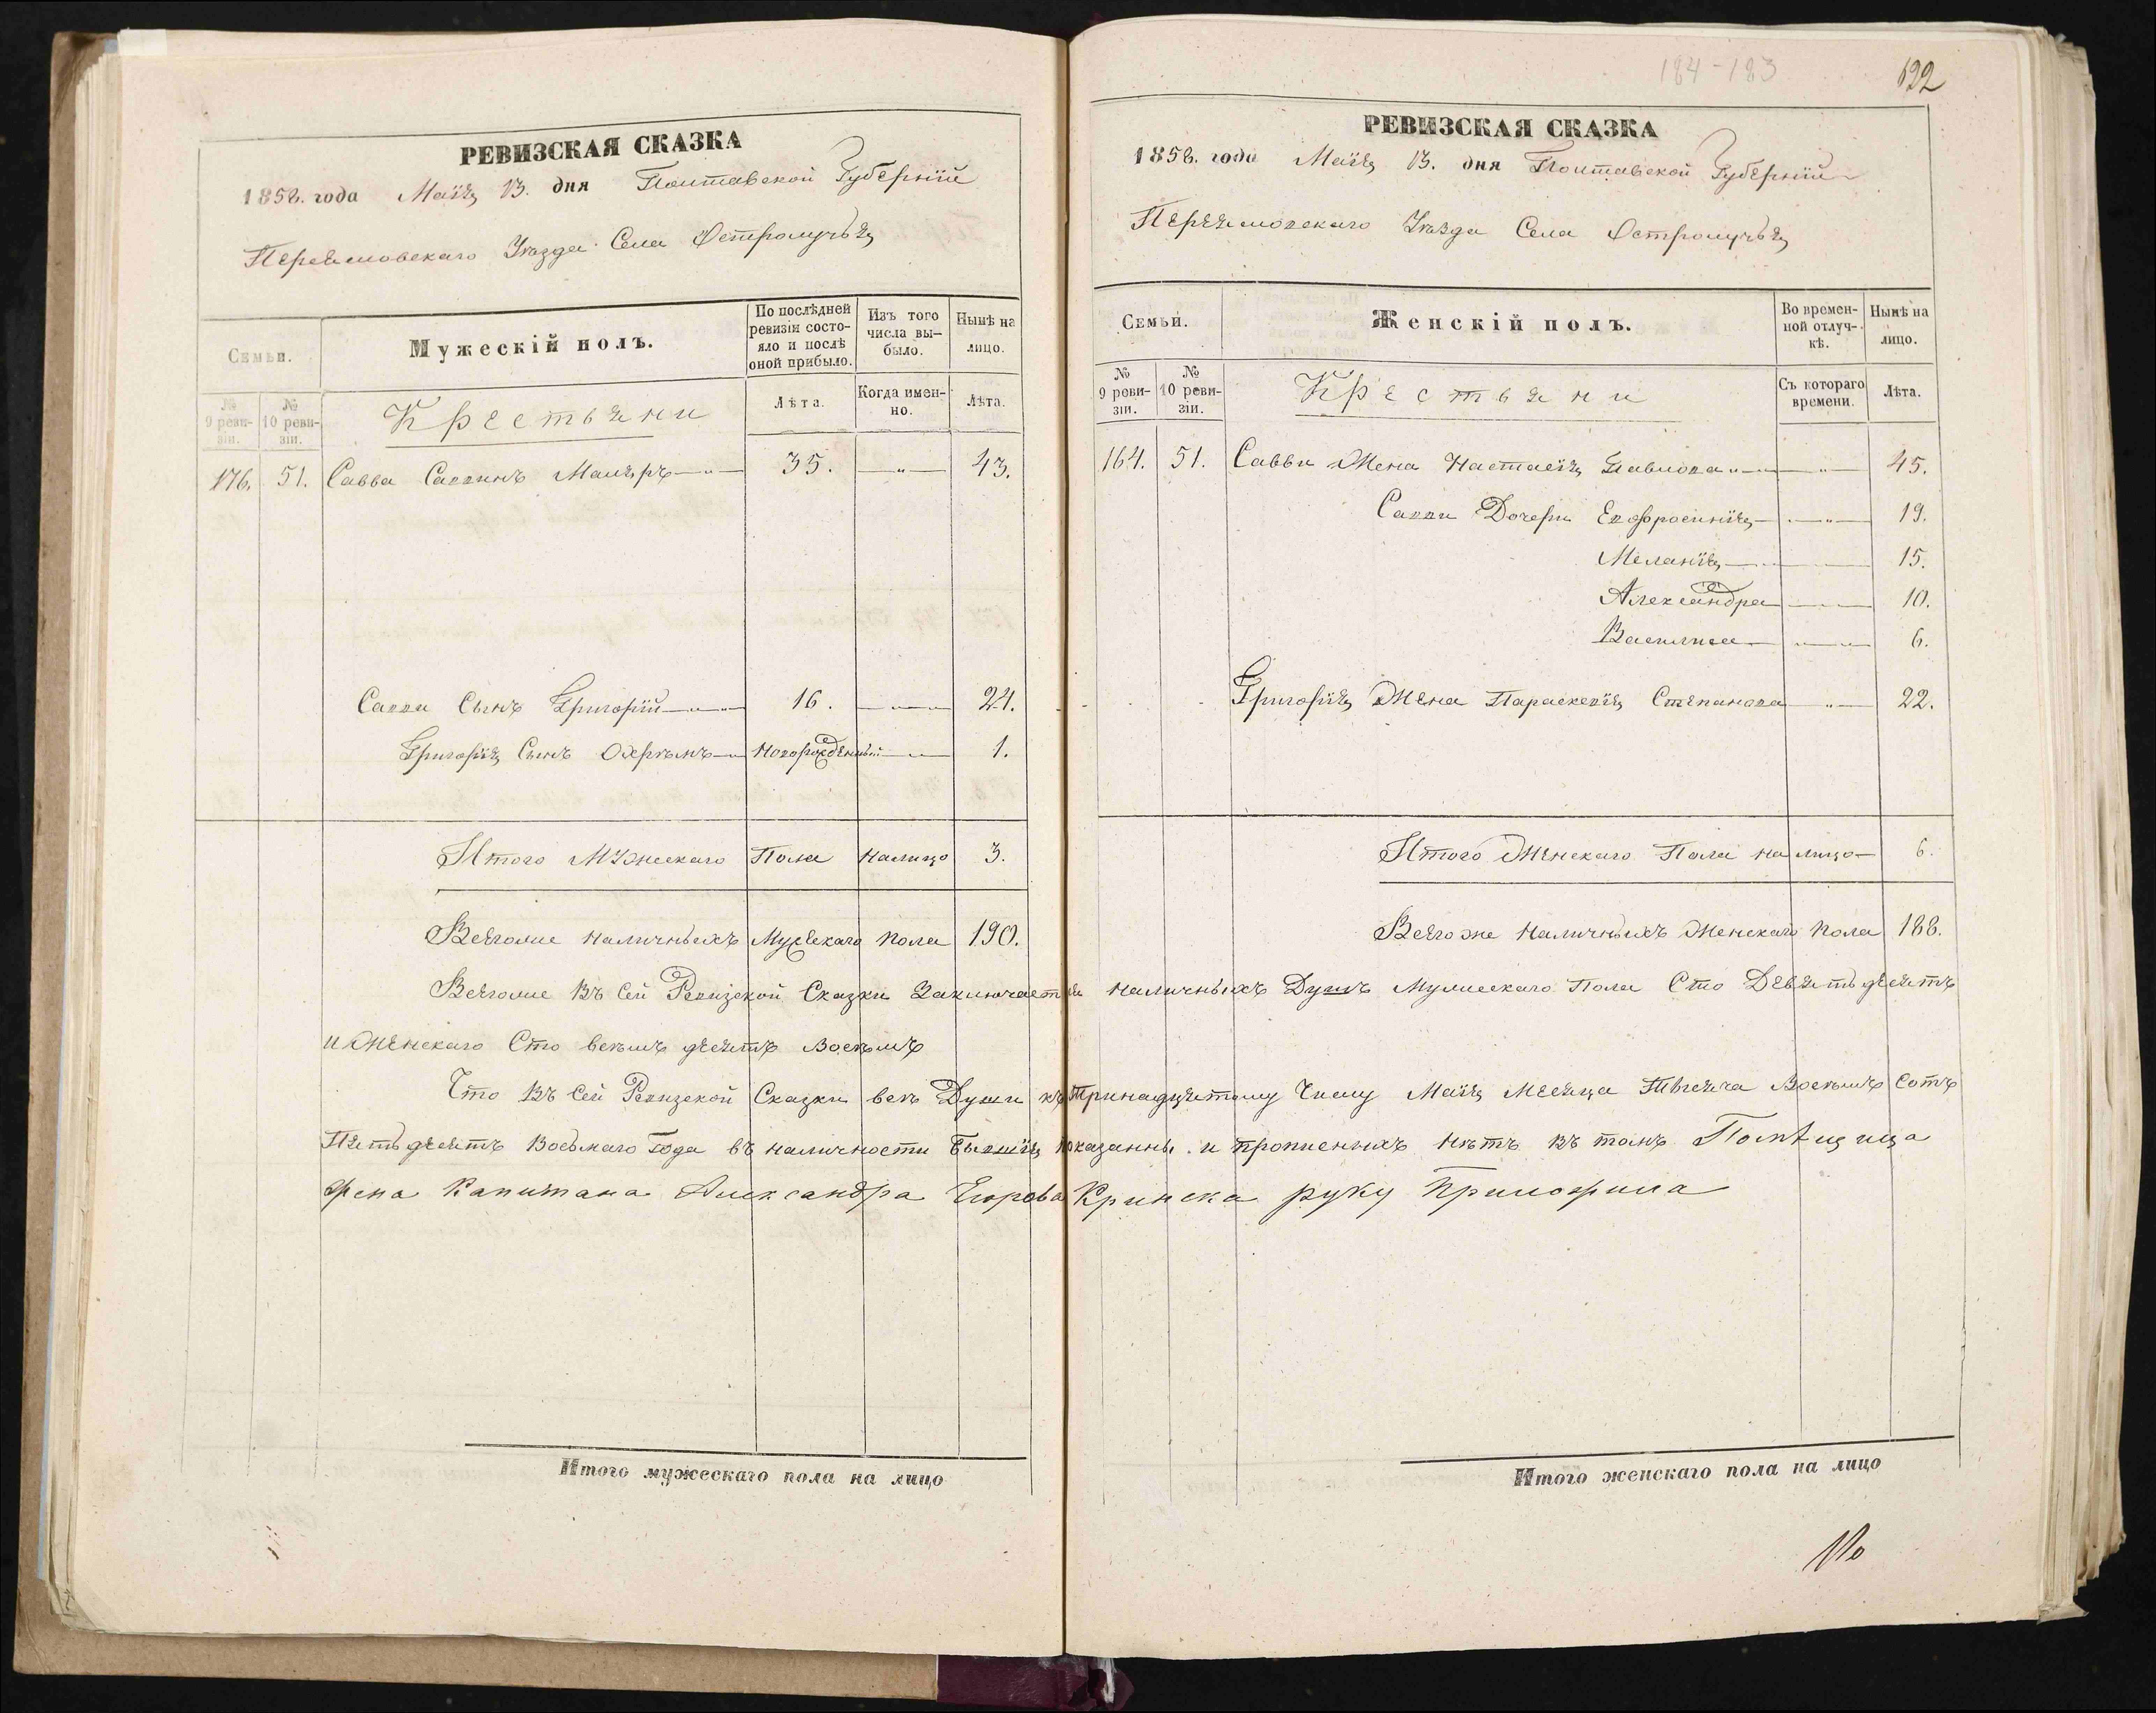 184-183
122
РЕВИЗСКАЯ СКАЗКА
1858. года Маія 13. дня Полтавской Губерніи
Переяславскаго Уѣзда Села Остролучья
Семьи.
Мужескій полъ.
По послѣдней ревизіи состо-
яло и послѣ
оной прибыло.
Изъ того
числа вы-
было.
Нынѣ на
лицо.
№
9 реви-
зіи.
№
10 реви-
зіи.
Крестьяни
Лѣта.
Когда имен-
но.
Лѣта.
176. 51. Савва Саввинъ 35. — " — 43.
Саввы Сынъ Григорій 16. 24.
Григорія Сынъ новорожденный 1.
Итого Мужескаго Пола налицо 3.
Всегоже наличныхъ Мужескаго пола 190.
РЕВИЗСКАЯ СКАЗКА
1858. года Маія 13. дня Полтавской Губерніи
Переяславскаго Уѣзда Села Остролучья
Семьи.
Женскій полъ.
Во времен-
ной отлуч-
кѣ.
Нынѣ на
лицо.
№
9 реви-
зіи.
№
10 реви-
зіи.
Крестьяни
Съ котораго
времени.
Лѣта.
164. 51. Саввы Жена Настасія Павлова 45.
Саввы Дочери Евфросинія 19.
Меланія 15.
Александра 10.
Василиса 6.
Григорія Жена Параскевія Степанова 22.
Итого Женскаго Пола на лицо 6.
Всегоже Наличныхъ Женскаго пола 188.
Всегоже въ Сей Ревизской Сказки Заключается наличныхъ Душъ Мужескаго Пола Сто Девятьдесятъ
и Женскаго Сто восѣмъ десятъ Восѣмъ
Что въ Сей Ревизской Сказки всѣ Души къ Тринадцятому Числу Маія Месяца Тысяча Восѣмъ Сотъ
Пятьдесятъ Восьмаго Года въ наличности бывшія показанны и прописныхъ нѣтъ въ томъ Помѣщица
жена Капитана Александра Егорова Кринска руку Приложила
Итого мужескаго пола на лицо
Итого женскаго пола на лицо